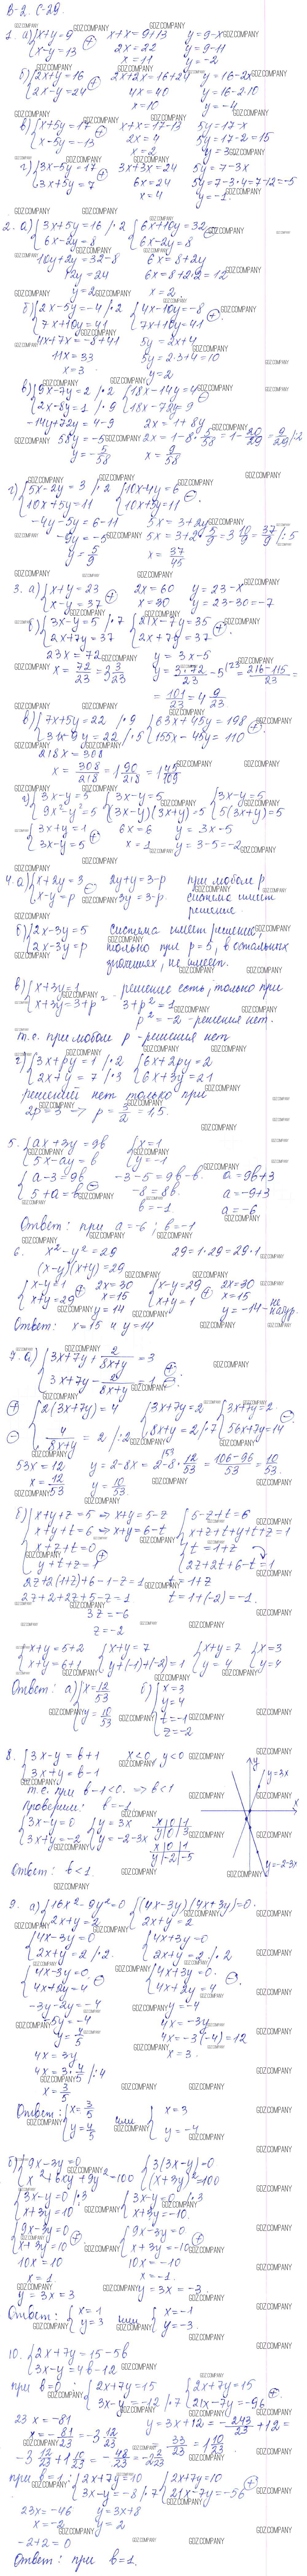 В-2. С-29.
1. а) { x+y=9
x-y=13 (+)
x+x=9+13
2x=22
x=11
y=9-x
y=9-11
y=-2
б) { 2x+y=16
2x-y=24 (+)
2x+2x=16+24
4x=40
x=10
y=16-2x
y=16-2·10
y=-4
в) { x+5y=17
x-5y=-13 (+)
x+x=17-13
2x=4
x=2
5y=17-x
5y=17-2=15
y=3
г) { 3x-5y=17
3x+5y=7 (+)
3x+3x=24
6x=24
x=4
5y=7-3x
5y=7-3·4=7-12=-5
y=-1
2. а) { 3x+5y=16 /·2
6x-2y=8
{ 6x+10y=32
6x-2y=8 (-)
10y+2y=32-8
12y=24
y=2
6x=8+2y
6x=8+2·2=12
x=2
б) { 2x-5y=-4 /·2
7x+10y=41
{ 4x-10y=-8
7x+10y=41 (+)
4x+7x=-8+41
11x=33
x=3
5y=2x+4
5y=2·3+4=10
y=2
в) { 9x-7y=2 /·2
2x-8y=1 /·9
{ 18x-14y=4
18x-72y=9 (-)
-14y+72y=4-9
58y=-5
y=-5/58
2x=1+8y
2x=1-8·5/58=1-20/29=9/29 /:2
x=9/58
г) { 5x-2y=3 /·2
10x+5y=11
{ 10x-4y=6
10x+5y=11 (-)
-4y-5y=6-11
-9y=-5
y=5/9
5x=3+2y
5x=3+2·5/9=3 10/9=37/9 /:5
x=37/45
3. а) { x+y=23
x-y=37 (+)
2x=60
x=30
y=23-x
y=23-30=-7
б) { 3x-y=5 /·7
2x+7y=37
{ 21x-7y=35
2x+7y=37 (+)
23x=72
x=72/23=3 3/23
y=3x-5
y=3·72/23-5=(216-115)/23=
=101/23=4 9/23
в) { 7x+5y=22 /·9
31x-9y=22 /·5
{ 63x+45y=198
155x-45y=110 (+)
218x=308
x=308/218=1 90/218=1 45/109
г) { 3x-y=5
9x²-y²=5
{ 3x-y=5
(3x-y)(3x+y)=5
{ 3x-y=5
5(3x+y)=5
{ 3x+y=1
3x-y=5 (+)
6x=6
x=1
y=3x-5
y=3-5=-2
4. а) { x+2y=3
x-y=p (-)
2y+y=3-p
3y=3-p
при любом p
система имеет
решение.
б) { 2x-3y=5
2x-3y=p
система имеет решение,
только при p=5, в остальных
значениях, не имеет.
в) { x+3y=1
x+3y=3+p²
решение есть, только при
3+p²=1
p²=-2 - решения нет.
т.е. при любом p - решения нет
г) { 3x+py=1 /·2
2x+y=7 /·3
{ 6x+2py=2
6x+3y=21
решений нет только при
2p=3 → p=3/2=1,5.
5. { ax+3y=9b
5x-ay=b
{ x=1
y=-1
{ a-3=9b
5+a=b (-)
-3-5=9b-b
-8=8b
b=-1
a=9b+3
a=-9+3
a=-6
Ответ: при a=-6; b=-1
6. x²-y²=29
29=1·29=29·1
(x-y)(x+y)=29
{ x-y=1
x+y=29 (+)
2x=30
x=15
y=14
{ x-y=29
x+y=1 (+)
2x=30
x=15
y=-14 - не натур.
Ответ: x=15 и y=14
7. а) { 3x+7y+2/(8x+y)=3
3x+7y-2/(8x+y)=1 (+) (-)
(+) { 2(3x+7y)=4
(-) 4/(8x+y)=2 /:2
{ 3x+7y=2
8x+y=2 /·7
{ 3x+7y=2
56x+7y=14 (-)
53x=12
x=12/53
y=2-8x=2-8·12/53=(106-96)/53=10/53
y=10/53
б) { x+y+z=5 ⇒ x+y=5-z
x+y+t=6 ⇒ x+y=6-t
x+z+t=0
y+z+t=1
{ 5-z+t=6
x+z+t+y+t+z=1
{ t=1+z
2z+2t+6-t=1
2z+2(1+z)+6-1-z=1
2z+2+2z+5-z=1
3z=-6
z=-2
t=1+z
t=1+(-2)=-1.
{ x+y=5+2
x+y=6+1
{ x+y=7
y+(-1)+(-2)=1
{ x+y=7
y=4
{ x=3
y=4
Ответ: а) { x=12/53
y=10/53
б) { x=3
y=4
t=-1
z=-2
8. { 3x-y=b+1
3x+y=b-1
x<0 y<0
т.е. при b-1<0 ⇒ b<1
Проверим: b=-1
{ 3x-y=0
3x+y=-2
{ y=3x
y=-2-3x
x|0|1
y|0|3
x|0|1
y|-2|-5
y
y=3x
x
y=-2-3x
Ответ: b<1.
9. а) { 16x²-9y²=0
2x+y=2
{ (4x-3y)(4x+3y)=0
2x+y=2
{ 4x-3y=0
2x+y=2 /·2
{ 4x+3y=0
2x+y=2 /·2
{ 4x-3y=0
4x+2y=4 (-)
{ 4x+3y=0
4x+2y=4 (-)
-3y-2y=-4
-5y=-4
y=4/5
4x=3y
4x=3·4/5 /:4
x=3/5
y=-4
4x=-3y
4x=-3·(-4)=12
x=3.
Ответ: { x=3/5
y=4/5
или { x=3
y=-4
б) { 9x-3y=0
x²+6xy+9y²=100
{ 3(3x-y)=0
(x+3y)²=100
{ 3x-y=0 /·3
x+3y=10
{ 3x-y=0 /·3
x+3y=-10
{ 9x-3y=0
x+3y=10 (+)
{ 9x-3y=0
x+3y=-10 (+)
10x=10
x=1
y=3x=3
10x=-10
x=-1.
y=3x=-3
Ответ: { x=1
y=3
или { x=-1
y=-3.
10. { 2x+7y=15-5b
3x-y=4b-12
при b=0: { 2x+7y=15
3x-y=-12 /·7
{ 2x+7y=15
21x-7y=-96 (+)
23x=-81
x=-81/23=-3 12/23
y=3x+12=-243/23+12=
33/23=1 10/23
-3 12/23+1 10/23=-48/23=-2 2/23
при b=1: { 2x+7y=10
3x-y=-8 /·7
{ 2x+7y=10
21x-7y=-56 (+)
23x=-46
x=-2
y=3x+8
y=2
-2+2=0
Ответ: при b=1.